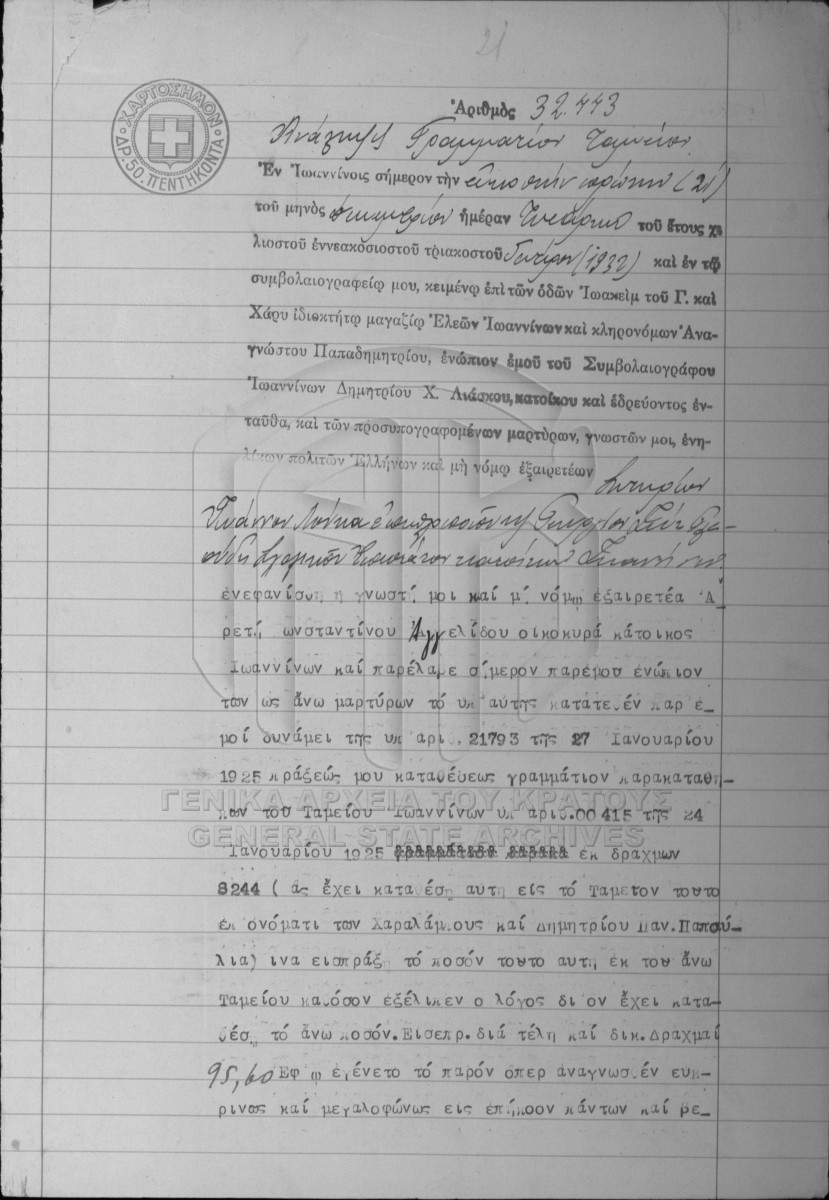 21
ΧΑΡΤΟΣΗΜΟΝ
ΔΡ. 50. ΠΕΝΤΗΚΟΝΤΑ
Ἀριθμὸς 32.443
Γραμματίου Ταμείου
Ἐν Ἰωαννίνοις σήμερον τὴν εἰκοστὴν πρώτην (21)
τοῦ μηνὸς ἡμέραν Τετάρτην τοῦ ἔτους χι
λιοστοῦ ἐννεακοσιοστοῦ τριακοστοῦ δευτέρου (1932) καὶ ἐν τῷ
συμβολαιογραφείῳ μου, κειμένῳ ἐπὶ τῶν ὁδῶν Ἰωακεὶμ τοῦ Γ. καὶ
Χάρυ ἰδιοκτήτῳ μαγαζίῳ Ἐλεῶν Ἰωαννίνων καὶ κληρονόμων Ἀνα-
γνώστου Παπαδημητρίου, ἐνώπιον ἐμοῦ τοῦ Συμβολαιογράφου
Ἰωαννίνων Δημητρίου Χ. Λιάσκου, κατοίκου καὶ ἑδρεύοντος ἐν-
ταῦθα, καὶ τῶν προσυπογραφομένων μαρτύρων, γνωστῶν μοι, ἐνη-
λίκων πολιτῶν Ἑλλήνων καὶ μὴ νόμῳ ἐξαιρετέων Σωτηρίου
Ἰωάννου Λούκα Γεωργίου
κατοίκων
ἐνεφανίσθη ἡ γνωστή μοι καί μή νόμῳ ἐξαιρετέα Ἀ
ρετή ωνσταντίνου Ἀγγελίδου οικοκυρά κάτοικος
Ἰωαννίνων καί παρέλαβε σήμερον παρέμοσ ενώπιον
των ως ἄνω μαρτύρων τό υπ αύτης κατατεθέν παρ ε-
μοί δυνάμει της υπ αριθ. 21793 της 27 Ιανουαρίου
1925 πράξεώς μου καταθέσεως γραμμάτιον παρακαταθη-
κων του Ταμείου Ἰωαννίνων υπ αριθ.00415 της 24
Ιανουαρίου 1925 εκ δραχμων
8244 ( άς ἔχει καταθέση αυτη είς τό Ταμειον τουτο
επ ονόματι των Χαραλάμπους καί Δημητρίου Παν.Παπαύ-
λια) ινα εισπράξη τό ποσόν τουτο αυτη εκ του ἄνω
Ταμείου καθόσον εξέλιπεν ο λόγος δι ον έχει κατα-
θέση τό άνω ποσόν.Εισεπρ.διά τέλη καί δικ.Δραχμαί
95,60 Εφ ω εγένετο τό παρόν οπερ αναγνωσθέν ευκ-
ρινως καί μεγαλοφώνως εις επήκοον πάντων καί βε-
ΓΕΝΙΚΑ ΑΡΧΕΙΑ ΤΟΥ ΚΡΑΤΟΥΣ
GENERAL STATE ARCHIVES